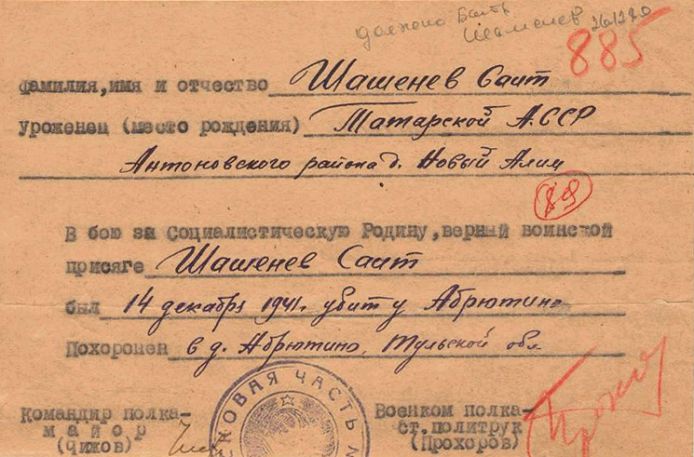 должно быть
Шаменев 261280
885
фамилия, имя и отчество Шашенев Саит
уроженец (место рождения) Татарской АССР
Антоновского района д. Новый Алим
89
В бою за Социалистическую Родину, верный воинской
присяге Шашенев Саит
был 14 декабря 1941г. убит у Абрютино
Похоронен в д. Абрютино, Тульской обл
КОВАЯ ЧАСТЬ
Командир полка-
майор
(Чижов)
Военком полка-
ст. политрук
(Прохоров)